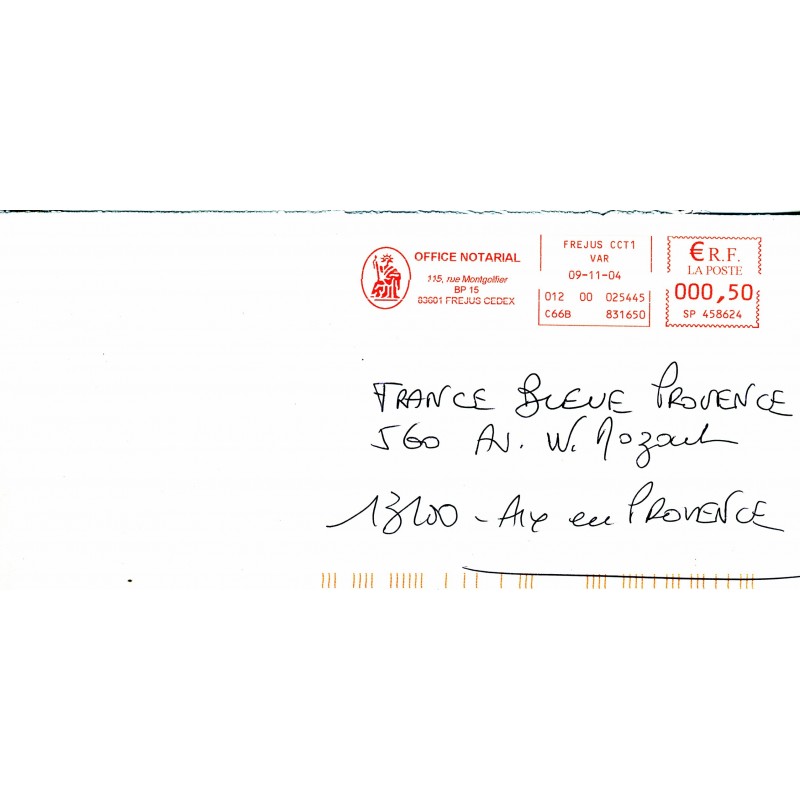 OFFICE NOTARIAL
115, rue Montgolfier
BP 15
83601 FREJUS CEDEX
FREJUS CCT1
VAR
09-11-04
012 00 025445
C66B 831650
€ R.F.
LA POSTE
000,50
SP 458624
FRANCE BLEUE PROVENCE
560 AV. W. Mozart
13100 - Aix en PROVENCE